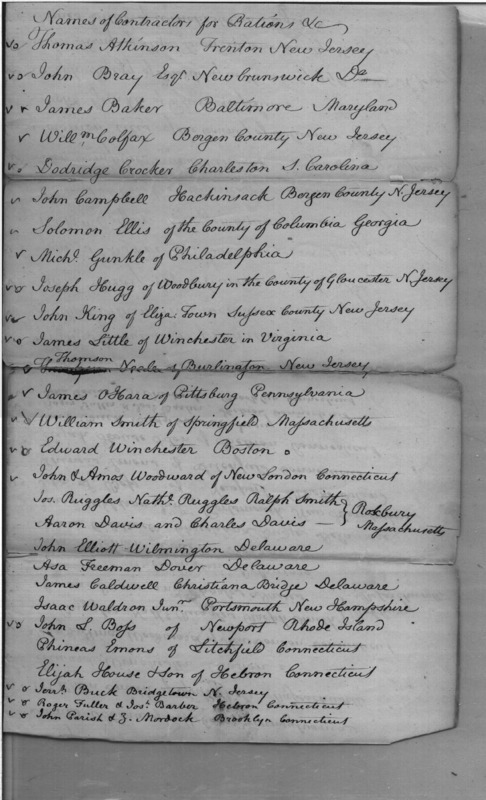 Names of Contractors for Rations &c
Thomas Atkinson Trenton New Jersey
John Bray Esqr. New brunswick Do
James Baker Baltimore Maryland
Willm. Colfax Borgen County New Jersey
Dodridge Crocker Charleston S. Carolina
John Campbell Hackinsack Borgen County N. Jersey
Solomon Ellis of the County of Columbia Georgia
Michl. Gunkle of Philadelphia
Joseph Hugg of Woodbury in the County of Gloucester N. Jersey
John King of Eliza: Town Sussex County New Jersey
James Little of Winchester in Virginia
Thomson
Neale of Burlington New Jersey
James OHara of Pittsburg Pennsylvania
William Smith of Springfield Massachusetts
Edward Winchester Boston
John & Amos Woodward of New London Connecticut
Jos. Ruggles Nathl. Ruggles Ralph Smith
Aaron Davis and Charles Davis
Roxbury
Massachusetts
John Elliott Wilmington Delaware
Asa Freeman Dover Delaware
James Caldwell Christiana Bridge Delaware
Isaac Waldron Junr. Portsmouth New Hampshire
John L. Boss of Newport Rhode Island
Phineas Emons of Litchfield Connecticut
Elijah House & Son of Hebron Connecticut
Jerrh. Buck Bridgetown N. Jersey
Roger Fuller & Josh. Barber Hebron Connecticut
John Parish & Z. Mordock Brooklyn Connecticut